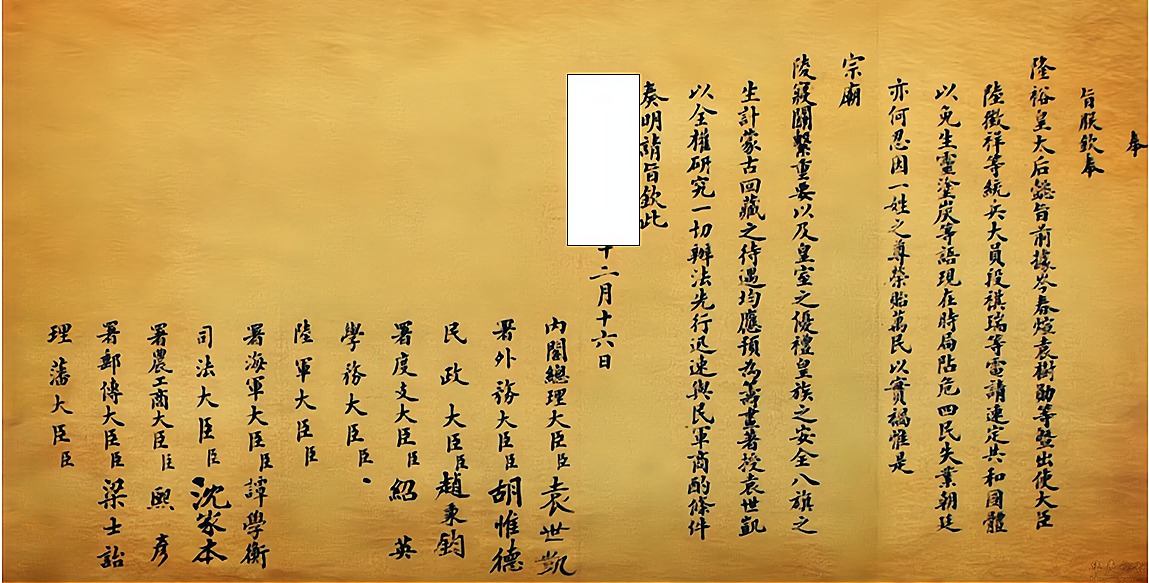 奉
旨朕欽奉
隆裕皇太后懿旨前據岑春煊袁樹勛等暨出使大臣
陸徵祥等統兵大員段祺瑞等電請速定共和國體
以免生靈塗炭等語現在時局阽危四民失業朝廷
亦何忍因一姓之尊榮貽萬民以實禍惟是
宗廟
陵寢關繫重要以及皇室之優禮皇族之安全八旗之
生計蒙古回藏之待遇均應預為籌畫著授袁世凱
以全權研究一切辦法先行迅速與民軍商酌條件
奏明請旨欽此
十二月十六日
內閣總理大臣臣袁世凱
署外務大臣臣胡惟德
民政大臣臣趙秉鈞
署度支大臣臣紹英
學務大臣臣
陸軍大臣臣
署海軍大臣臣譚學衡
司法大臣臣沈家本
署農工商大臣臣熙彥
署郵傳大臣臣梁士詒
理藩大臣臣